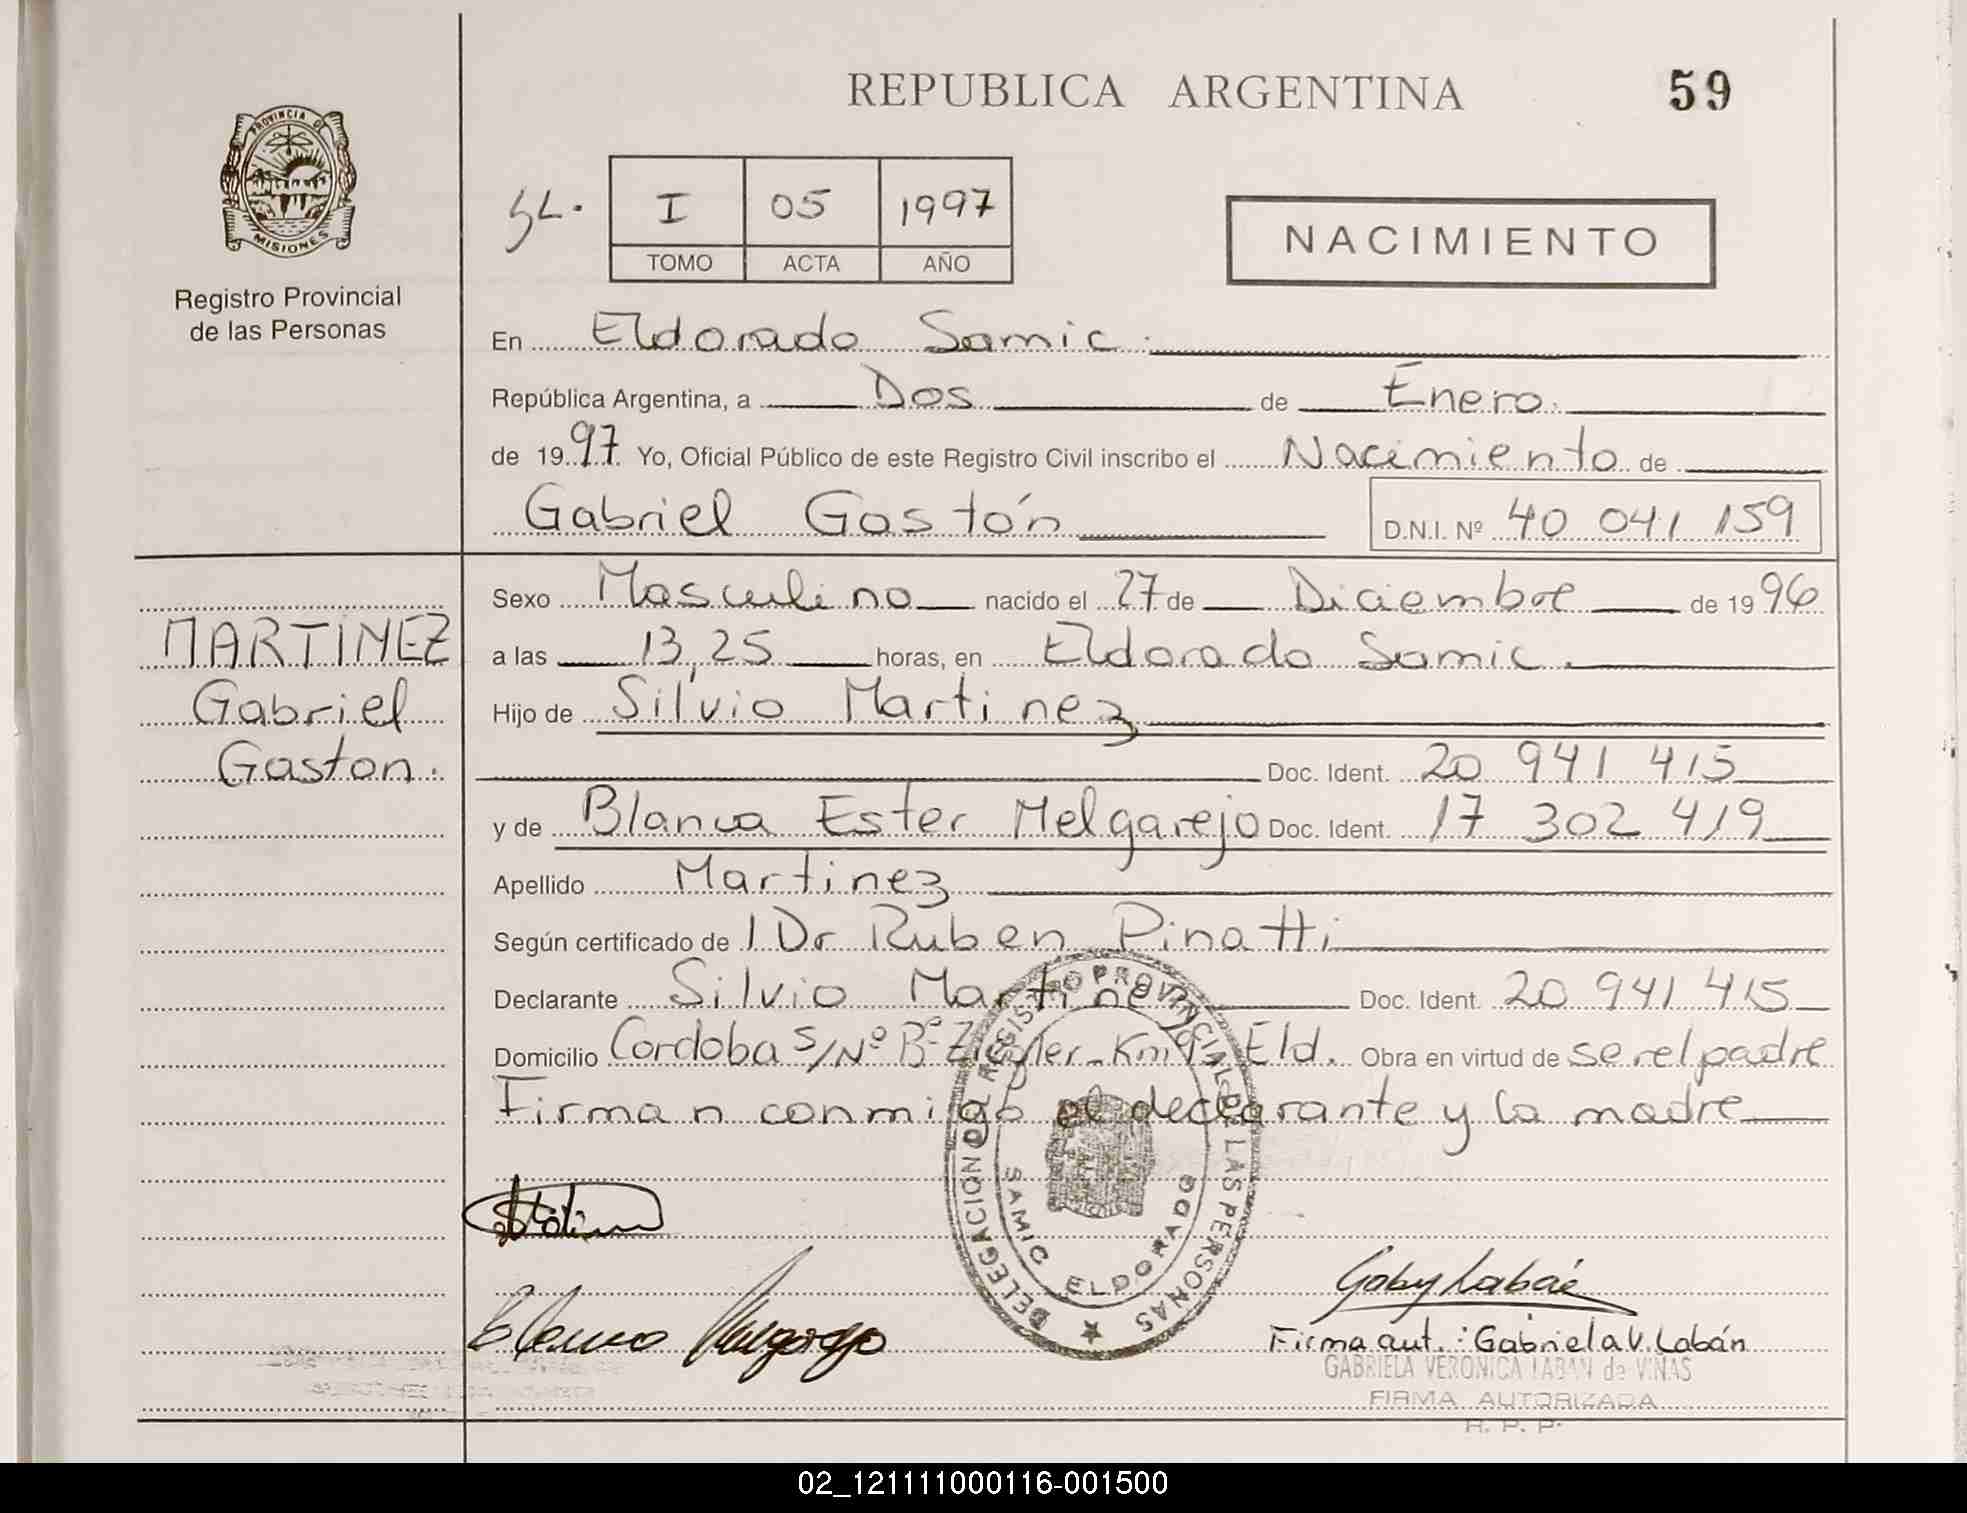 REPUBLICA ARGENTINA
59
PROVINCIA DE
MISIONES
Registro Provincial
de las Personas
SL.
I 05 1997
TOMO ACTA AÑO
NACIMIENTO
En Eldorado Samic.
República Argentina, a Dos de Enero.
de 1997 Yo, Oficial Público de este Registro Civil inscribo el Nacimiento de
Gabriel Gastón D.N.I. Nº 40 041 159
MARTINEZ
Gabriel
Gaston.
Sexo Masculino nacido el 27 de Diciembre de 1996
a las 13,25 horas, en Eldorado Samic.
Hijo de Silvio Martinez
Doc. Ident. 20 941 415
y de Blanca Ester Melgarejo Doc. Ident. 17 302 419
Apellido Martinez
Según certificado de 1 Dr Ruben Pinatti
Declarante Silvio Martinez Doc. Ident. 20 941 415
Domicilio Cordoba S/Nº Bº Eld. Obra en virtud de ser el padre
Firman conmigo el declarante y la madre
DELEGACION REGISTRO PROVINCIAL DE LAS PERSONAS
SAMIC ELDORADO
Blanca Melgarejo
Gaby Labán
Firma aut.: Gabriela V. Labán
GABRIELA VERONICA LABAN de VIÑAS
FIRMA AUTORIZADA
R. P. P.
02_121111000116-001500